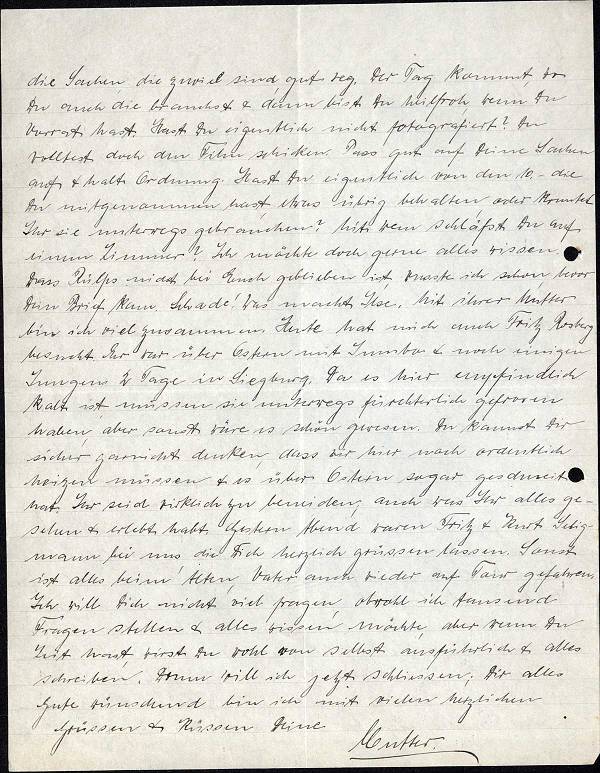 die Sachen, die zuviel sind, gut weg. Der Tag kommt, wo
Du auch die brauchst & dann bist Du heilfroh wenn Du
Vorrat hast. Hast Du eigentlich nicht fotografiert? Du
wolltest doch den Film schicken. Pass gut auf Deine Sachen
auf & halt Ordnung. Hast Du eigentlich von den 10,- die
Du mitgenommen hast etwas übrig behalten oder konntet
Ihr sie unterwegs gebrauchen? Mit wem schläfst Du auf
einem Zimmer? Ich möchte doch gerne alles wissen.
Dass Rülfs nicht bei Euch geblieben ist wusste ich schon, bevor
Dein Brief kam. Schade! Was macht Ilse. Mit ihrer Mutter
bin ich viel zusammen. Heute hat mich auch Fritz Rosberg
besucht. Er war über Ostern mit & noch einigen
Jungens 2 Tage in Siegburg. Da es hier empfindlich
kalt ist müssen sie unterwegs fürchterlich gefroren
haben, aber sonst wäre es schön gewesen. Du kannst Dir
sicher garnicht denken, dass wir hier noch ordentlich
heizen müssen & es über Ostern sogar geschneit
hat. Ihr seid wirklich zu beneiden, auch was Ihr alles ge-
sehen & erlebt habt. Gestern Abend waren Fritz & Kurt
mann bei uns die Dich herzlich grüssen lassen. Sonst
ist alles beim Alten, Vater auch wieder auf Tour gefahren.
Ich will Dich nicht viel fragen, obwohl ich tausend
Fragen stellen & alles wissen möchte, aber wenn Du
Zeit hast, wirst Du wohl von selbst ausführlich & alles
schreiben. Drum will ich jetzt schliessen. Dir alles
Gute wünschend bin ich mit vielen herzlichen
Grüssen & Küssen Deine
Mutter.